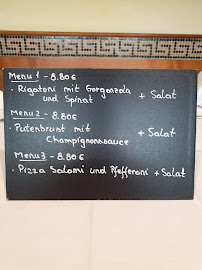 Menu 1 - 8.80€
· Rigatoni mit Gorgonzola
und Spinat + Salat
Menu 2 - 8.80€
· Putenbrust mit + Salat
Champignonssauce
Menu 3 - 8.80€
· Pizza Salami und Pfefferoni + Salat